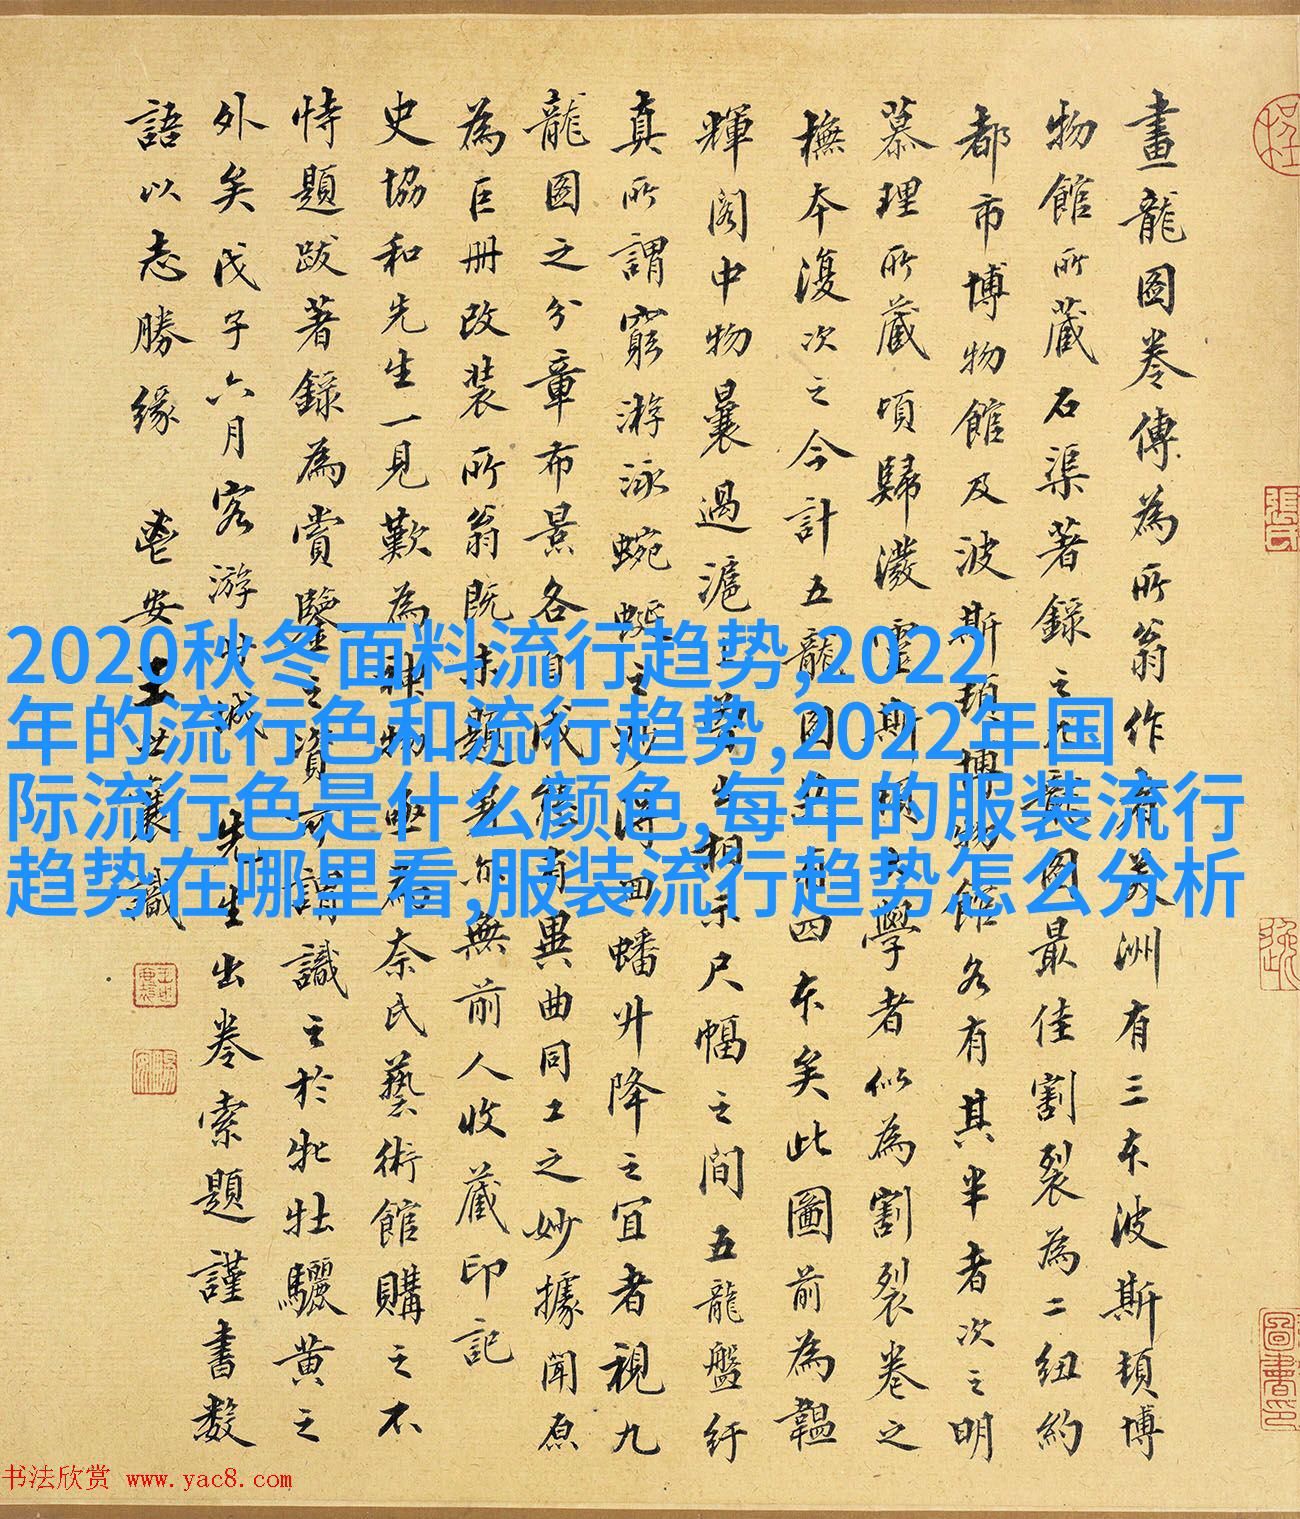 畫龍圖卷傳為所翁作者美洲有三本波斯頓博
物館所藏石渠著錄之九龍圖最佳割裂為二紐約
都市博物館及波斯頓博物館各有其半者次之明
慕理所藏頃歸瀅靈斯頓大學者似為割裂卷之
橅本復次之今計五龍圖五本四本矣此圖前為韞
輝閣中物曩過滬上夢出相示尺幅之間五龍盤紆
真所謂窮游泳蜿蜒之妙得四蟠升降之宜者視九
龍圖之分章布景各自成篇有異曲同工之妙據聞原
為巨冊改裝所翁既未題署亦無前人收藏印記
史協和先生一見歎為神物亟為奈氏藝術館購之不
特題跋著錄為賞鑒之資可謂識之於牝牡驪黃之
外矣戊子六月客游
先生出卷索題謹書數
語以志勝緣
2020秋冬面料流行趋势,2022
年的流行色和流行趋势,2022年国
际流行色是什么颜色,每年的服装流行
趋势在哪里看,服装流行趋势怎么分析
书法欣赏 www.yac8.com